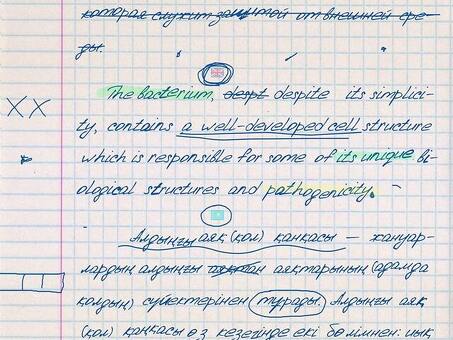 которая служит защитой от внешней сре-
ды.
The bacterium, despt despite its simplici-
ty, contains a well-developed cell structure
which is responsible for some of its unique bi-
ological structures and pathogenicity.
Алдыңғы аяқ (қол) қаңқасы — жануар-
лардың алдыңғы аяқтарының (адамда
қолдың) сүйектерінен тұрады. Алдыңғы аяқ
(қол) қаңқасы өз кезегінде екі бөлімнен: иық